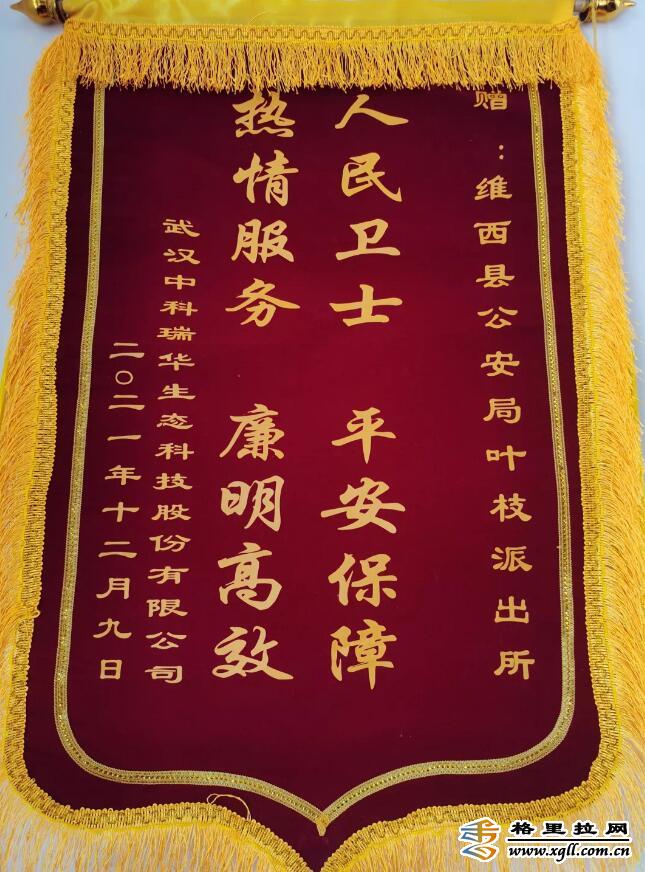 赠：维西县公安局叶枝派出所
人民卫士 平安保障
热情服务 廉明高效
武汉中科瑞华生态科技股份有限公司
二〇二一年十二月九日
格里拉网
www.xgll.com.cn